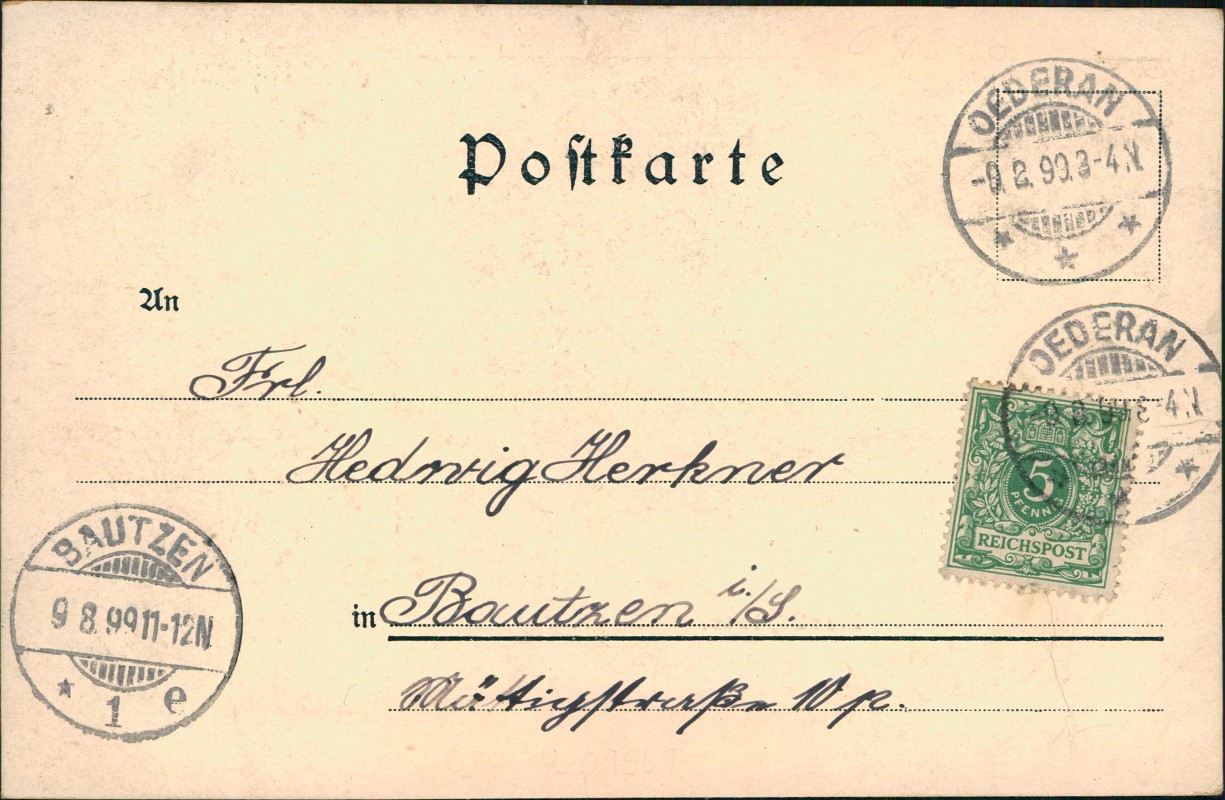 Postkarte
OEDERAN
8.99.3-4.N.
An
OEDERAN
Frl.
5
PFENNIG
REICHSPOST
Hedwig Herkner
BAUTZEN
9 8.99 11-12N.
1 e
in Bautzen i./S.
Mättigstraße 10 p.